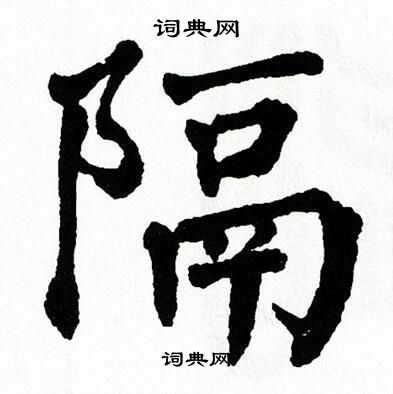 词典网
隔
词典网